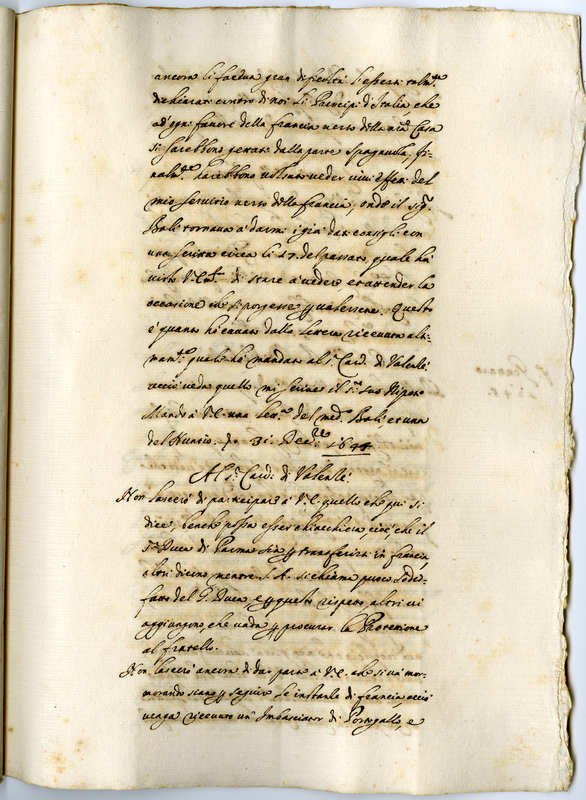 ancora li facdua gran dificoltà l'essersi talm.te
dichiarati contro di noi li Prencipi d'Italia che
ad ogni favore della francia verso della mia Casa
si sarebbono gettati dalla parte Spagnuola. fi-
nalm.te sarebbono voluto veder vivi effetti del
mio servitio verso della francia, onde il Sig.r
Balì tornava à darmi i già dati consigli con
una scritta circa li 27. del passato, quale hà
visto V. Em.a di stare à vedere, et attender la
occasione che si porgesse p valersene. Questo
è quanto hò cavato dalla lettera ricevuta ulti-
mam.te quale hò mandata al S.r Card. di Valensè
acciò veda quello mi scrive il S.r suo Nipote
Mando à V.E. una del med.o Balì, et una
del Nuncio. p.o 31 Dec.re 1644
Al S.r Card. di Valensè
Non lascerò di participare à V.E. quello che qui si
dice, benche possa esser chiacchiera, cioè, che il
S.r Duca di Parma sia p transferirsi in francia,
altri dicono mentre S. A. si chiama poco sodis-
fatto del G. Duca e p questo rispetto, altri vi
aggiungono, che vada p procurar la Protettione
al fratello.
Non lascerò ancora di dar parte à V.E. che si và mor-
morando siano p seguire le instanze di francia, acciò
venga ricevuto un Imbasciator di Portugallo, e